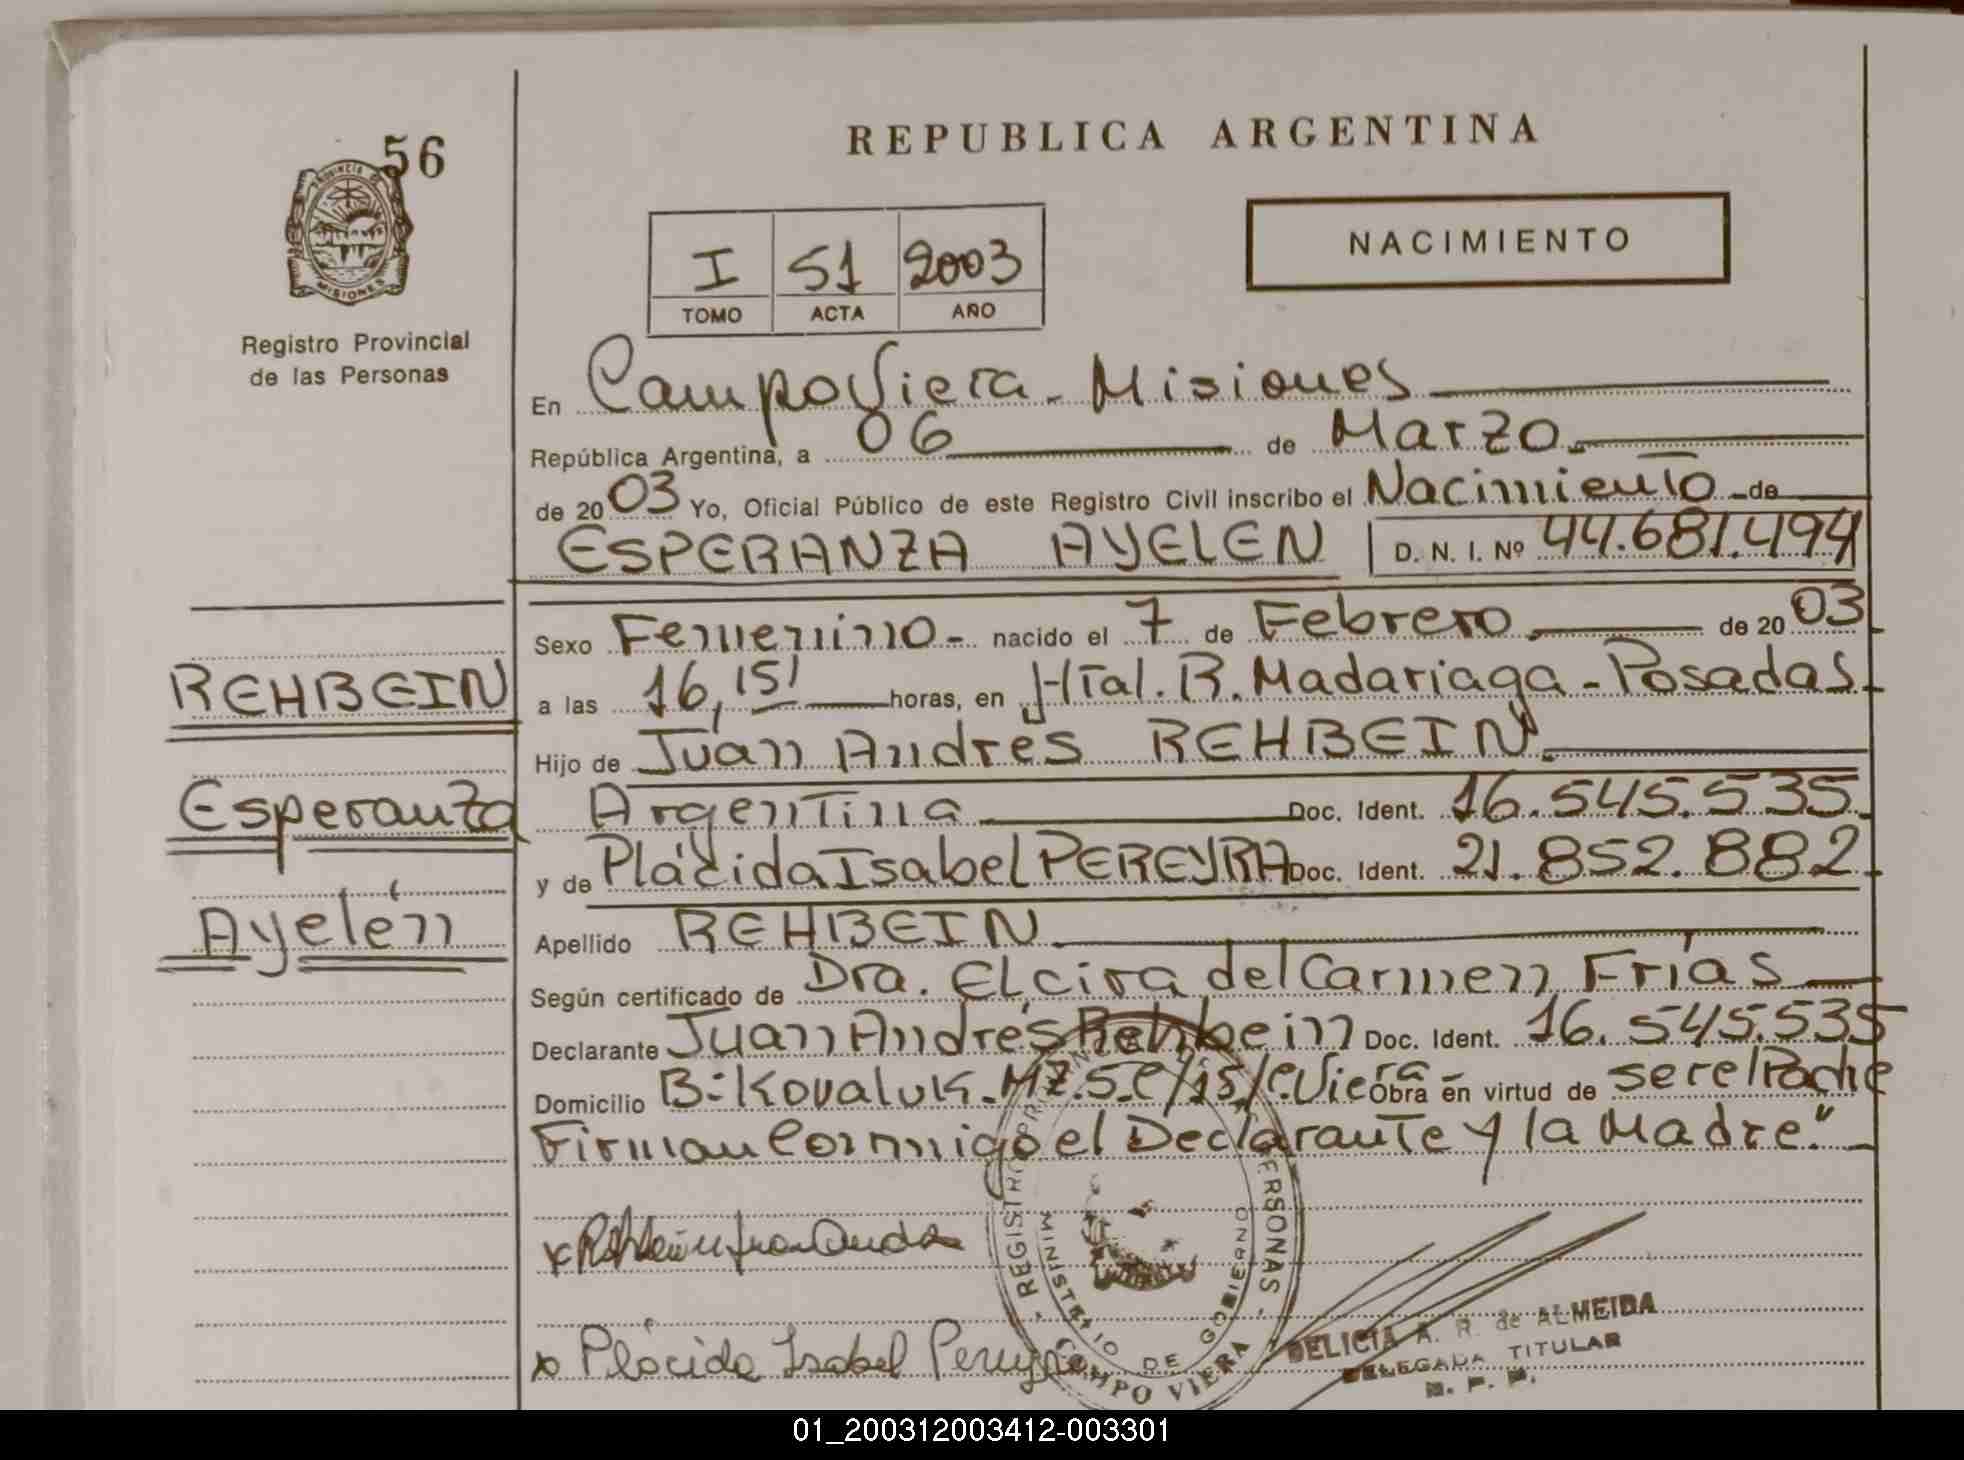 56
PROVINCIA DE
MISIONES
Registro Provincial
de las Personas
REHBEIN
Esperanza
Ayelén
REPUBLICA ARGENTINA
NACIMIENTO
I 51 2003
TOMO ACTA AÑO
En Campo Viera - Misiones
República Argentina, a 06 de Marzo
de 2003 Yo, Oficial Público de este Registro Civil inscribo el Nacimiento de
ESPERANZA AYELEN D. N. I. Nº 44.681.494
Sexo Femenino - nacido el 7 de Febrero de 2003
a las 16,15' horas, en Htal. R. Madariaga - Posadas
Hijo de Juan Andrés REHBEIN
Argentina Doc. Ident. 16.545.535
y de Plácida Isabel PEREYRA Doc. Ident. 21.852.882
Apellido REHBEIN
Según certificado de Dra. Elcira del Carmen Frías
Declarante Juan Andrés Rehbein Doc. Ident. 16.545.535
Domicilio B: Kovaluk. MZ.5.C/15/C.Viera - Obra en virtud de ser el Padre
Firman Conmigo el Declarante y la Madre."
x Plácida Isabel Pereyra
REGISTRO PERSONAS
MINISTERIO DE GOBIERNO
CAMPO VIERA
DELICIA A. R. de ALMEIDA
DELEGADA TITULAR
01_200312003412-003301